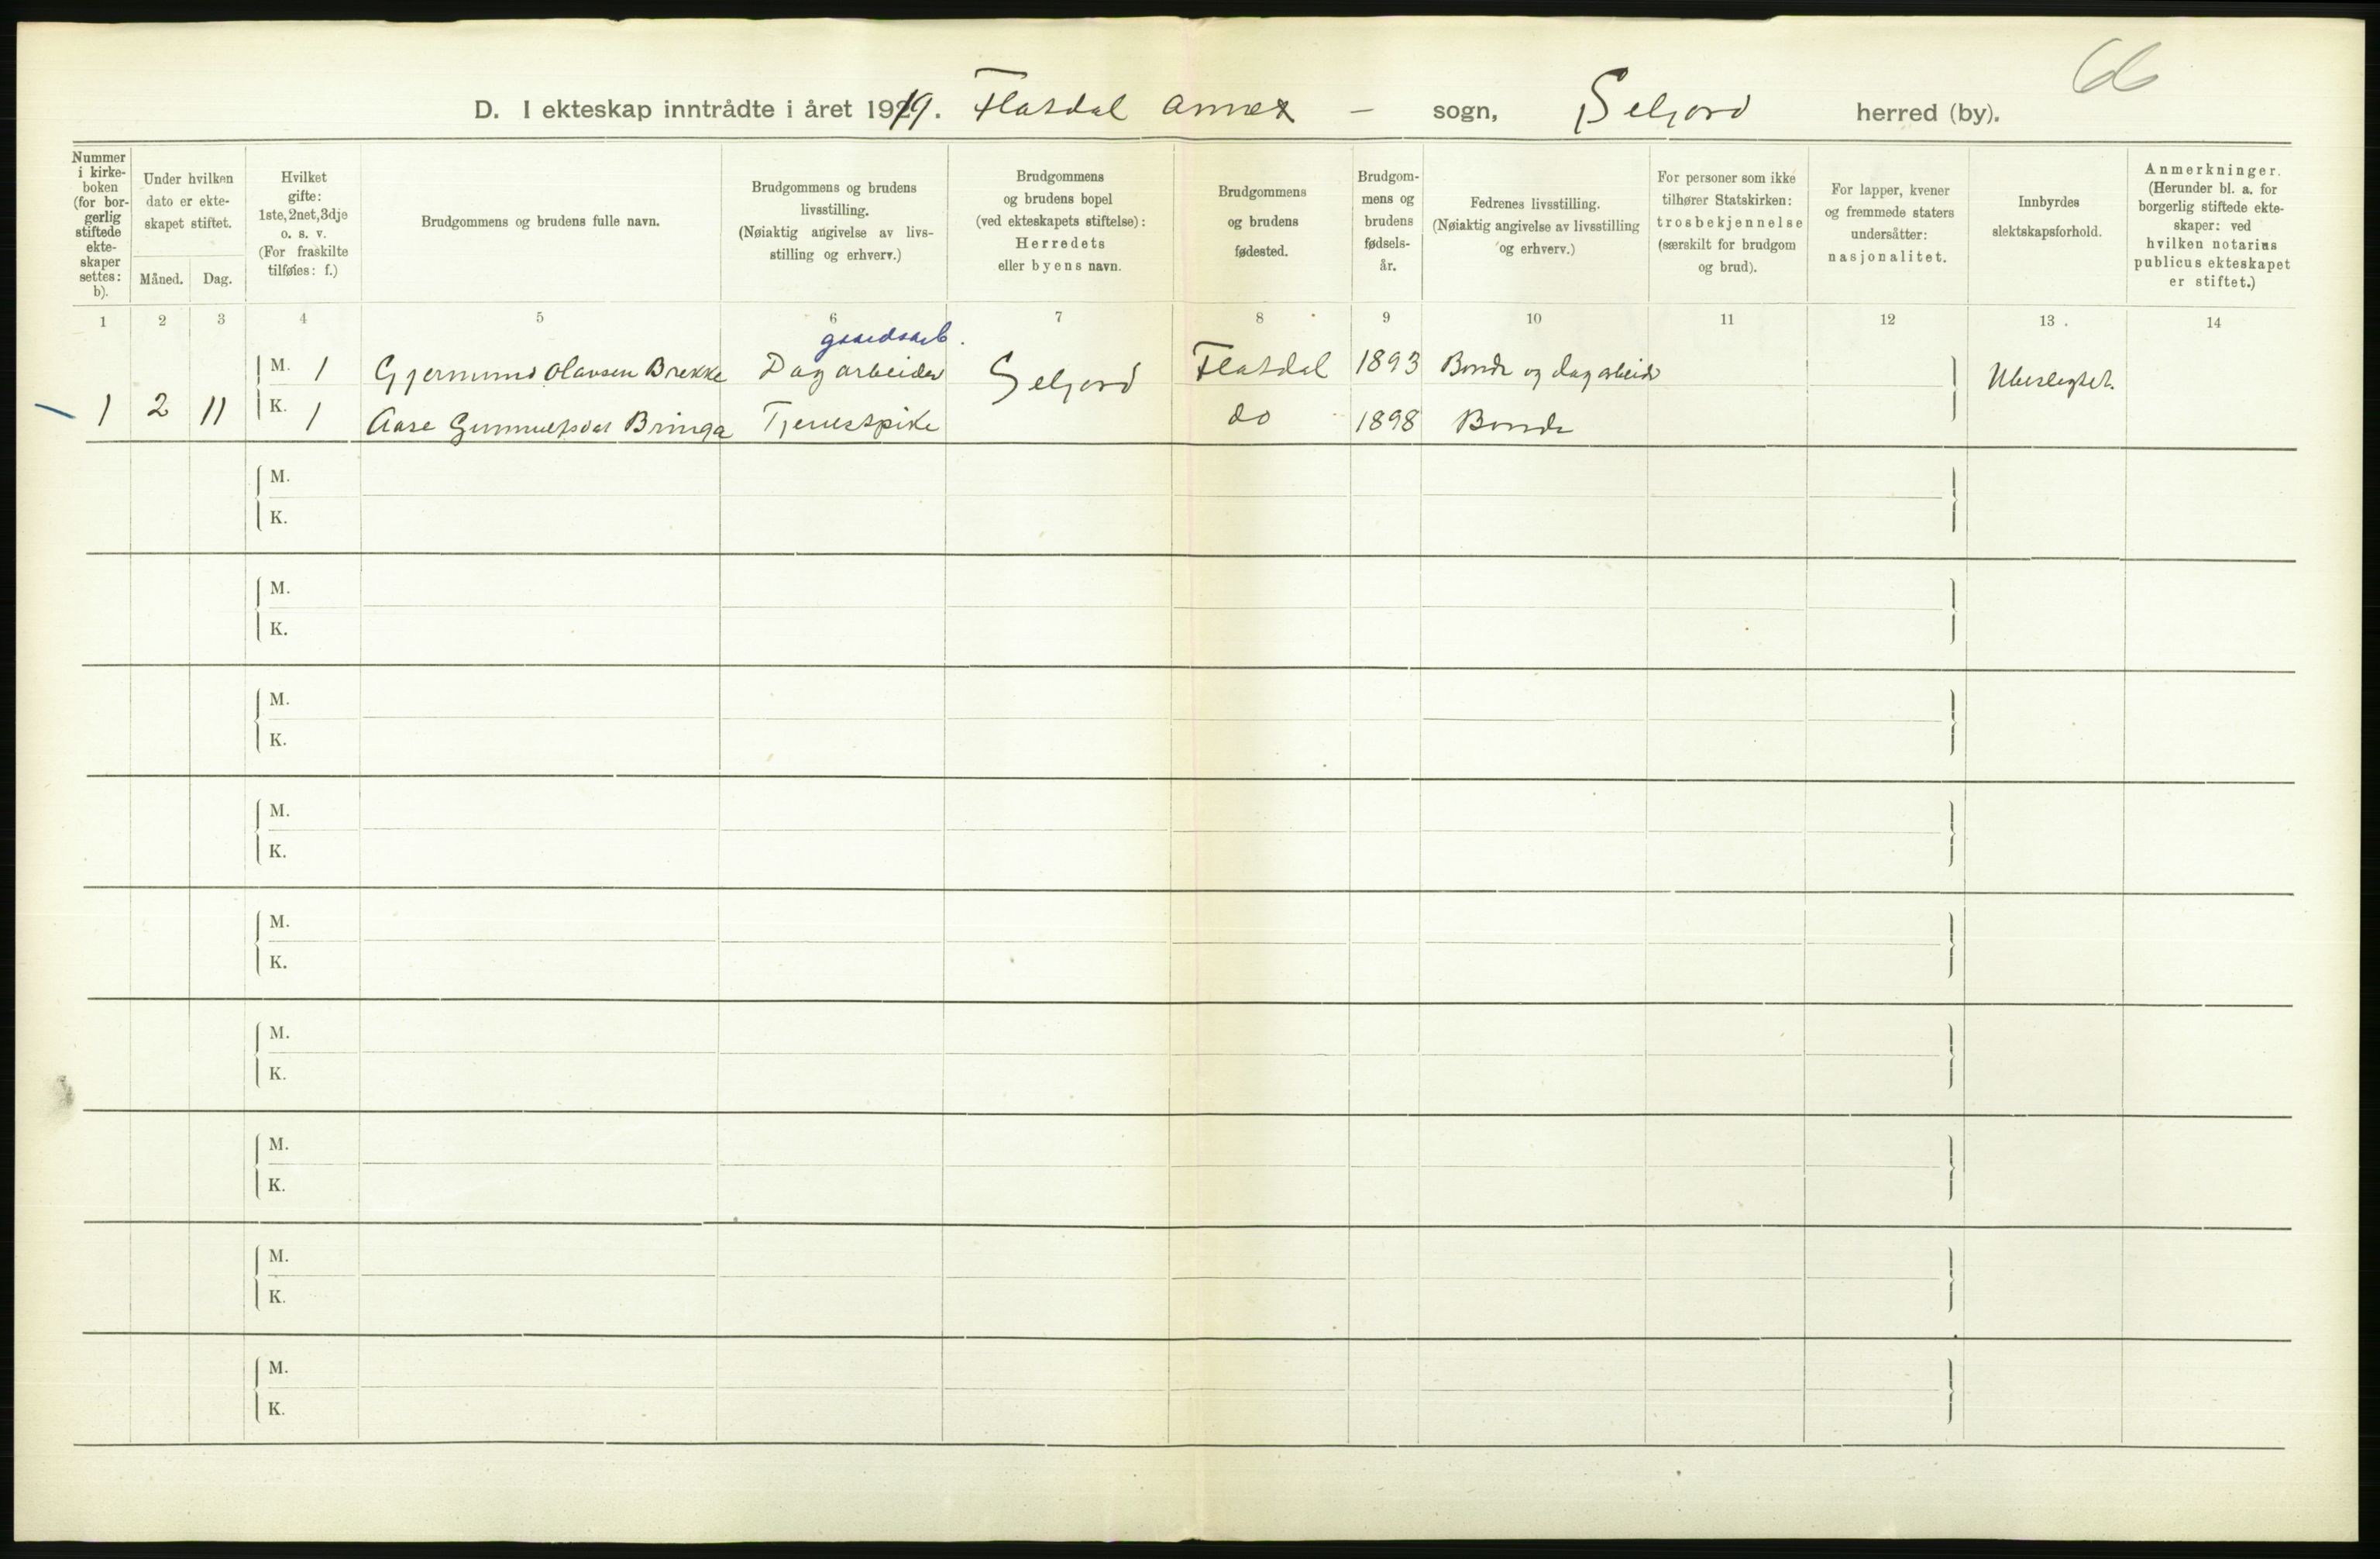 66
D. I ekteskap inntrådte i året 1919. Flatdal annex – sogn, Seljord herred (by).
Nummer i kirkeboken (for borgerlig stiftede ekteskaper settes: b).
Under hvilken dato er ekteskapet stiftet.
Måned. Dag.
Hvilket gifte: 1ste, 2net, 3dje o. s. v. (For fraskilte tilføies: f.)
Brudgommens og brudens fulle navn.
Brudgommens og brudens livsstilling. (Nøiaktig angivelse av livsstilling og erhverv.)
Brudgommens og brudens bopel (ved ekteskapets stiftelse): Herredets eller byens navn.
Brudgommens og brudens fødested.
Brudgommens og brudens fødselsår.
Fedrenes livsstilling. (Nøiaktig angivelse av livsstilling og erhverv.)
For personer som ikke tilhører Statskirken: trosbekjennelse (særskilt for brudgom og brud).
For lapper, kvener og fremmede staters undersåtter: nasjonalitet.
Innbyrdes slektskapsforhold.
Anmerkninger. (Herunder bl. a. for borgerlig stiftede ekteskaper: ved hvilken notarius publicus ekteskapet er stiftet.)
1 2 3 4 5 6 7 8 9 10 11 12 13 14
gaardsarb.
M. 1 Gjermund Olavsen Brekke Dagarbeider Seljord Flatdal 1893 Bonde og dagarbeider Ubeslegtet.
1 2 11 K. 1 Aase Gunnulfsdat Bringa Tjenestpike do 1898 Bonde
M.
K.
M.
K.
M.
K.
M.
K.
M.
K.
M.
K.
M.
K.
M.
K.
M.
K.